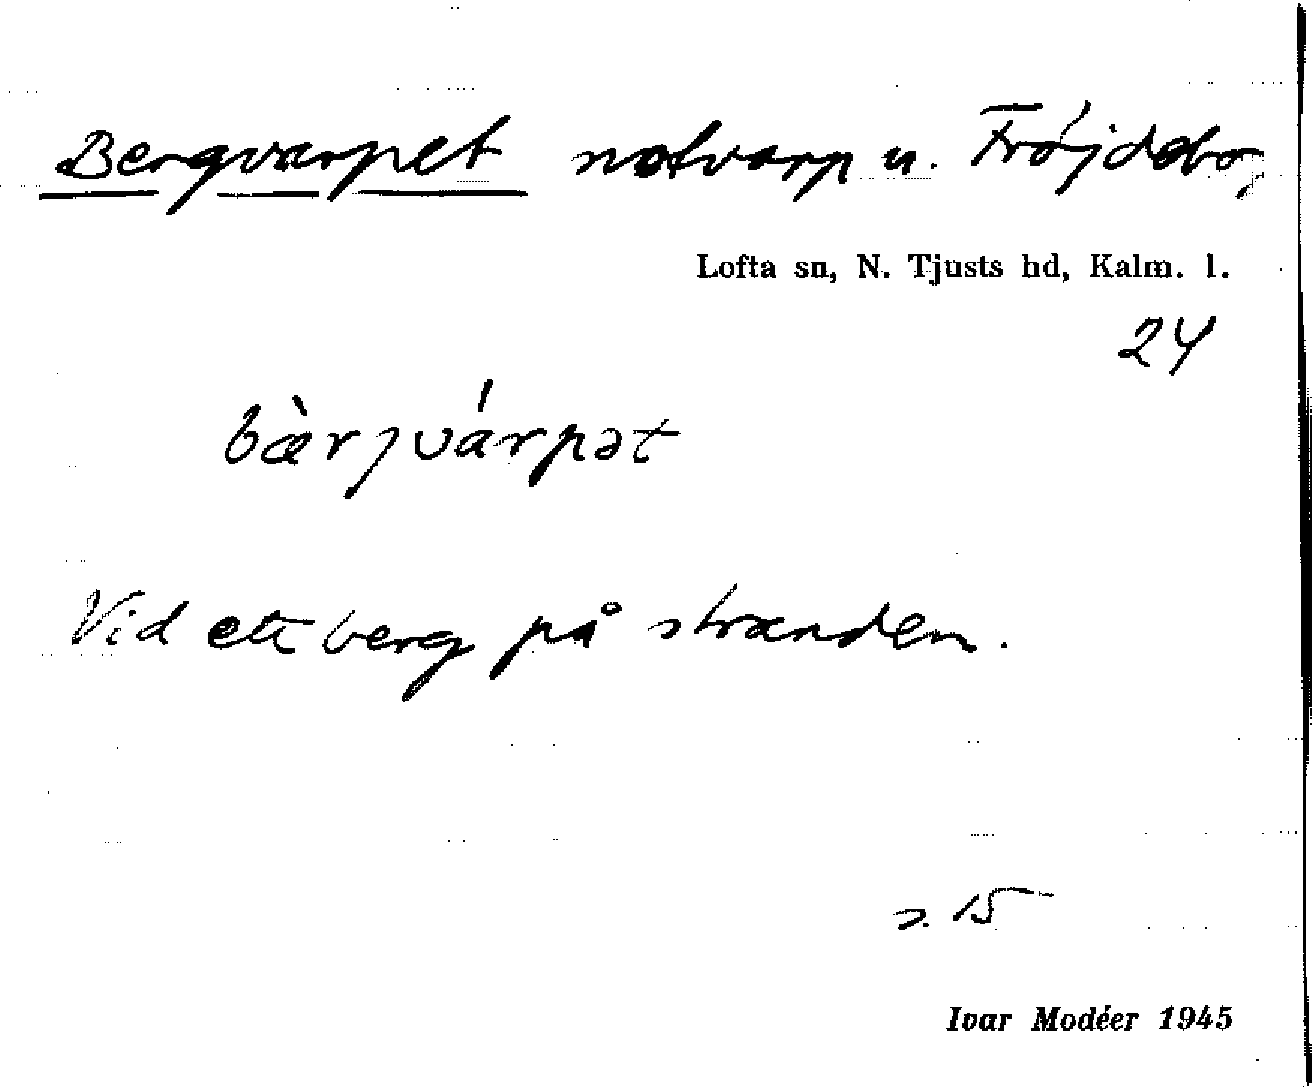 Bergvarpet notvarp u. Fröjdebo,
Lofta sn, N. Tjusts hd, Kalm. l.
24
bæ̀rjvárpət
Vid ett berg på stranden.
s. 15
Ivar Modéer 1945